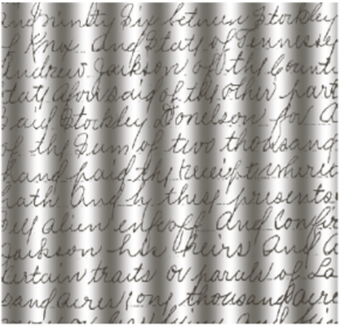 and ninety Six between Stockley
of Knox And State of Tennessee
Andrew Jackson of the County
State aforesaid of the other part
said Stockley Donelson for A
of the Sum of two thousand
hand paid the receipt whereof
hath And by these presents
sell alien enfeoff And Confir
Jackson his heirs And A
certain tracts or parcels of La
sand acres (ong thousand acre